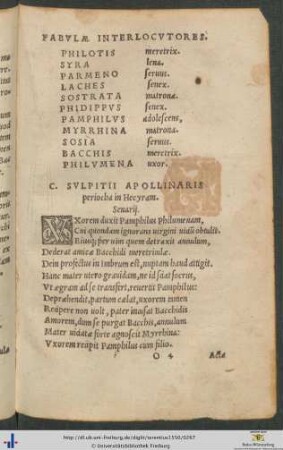 FABVLÆ INTERLOCVTORES.
PHILOTIS meretrix.
SYRA lena.
PARMENO seruus.
LACHES senex.
SOSTRATA matrona.
PHIDIPPVS senex.
PAMPHILVS adolescens,
MYRRHINA matrona.
SOSIA seruus.
BACCHIS meretrix.
PHILVMENA uxor.
C. SVLPITII APOLLINARIS
periocha in Hecyram.
Senarij.
VXorem duxit Pamphilus Philumenam,
Cui quondam ignorans uirgini uitiũ obtulit.
Eiusq; per uim quem detraxit annulum,
Dederat amicæ Bacchidi meretriculæ.
Dein profectus in Imbrum est, nuptam haud attigit.
Hanc mater utero grauidam, ne id sciat socrus,
Vt ægram ad se transfert, reuertit Pamphilus:
Deprehendit, partum cælat, uxorem tamen
Recipere non uolt, pater incusat Bacchidis
Amorem, dum se purgat Bacchis, annulum
Mater uitiatæ forte agnoscit Myrrhina:
Vxorem recipit Pamphilus cum filio.
O 4
Acta
http://dl.ub.uni-freiburg.de/diglit/terentius1550/0287
© Universitätsbibliothek Freiburg